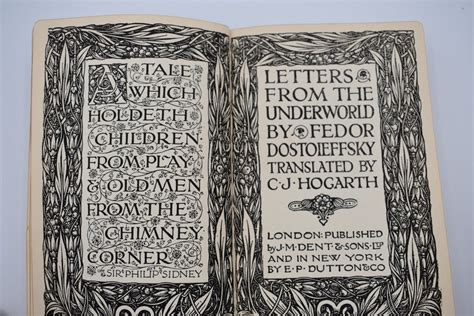 A TALE
WHICH
HOLDETH
CHILDREN
FROM PLAY
& OLD MEN
FROM THE
CHIMNEY
CORNER
SIR PHILIP SIDNEY
LETTERS
FROM THE
UNDERWORLD
BY FEDOR
DOSTOIEFFSKY
TRANSLATED BY
C·J·HOGARTH
LONDON: PUBLISHED
by J·M·DENT·&·SONS·LTD
AND IN NEW YORK
BY E·P·DUTTON & CO